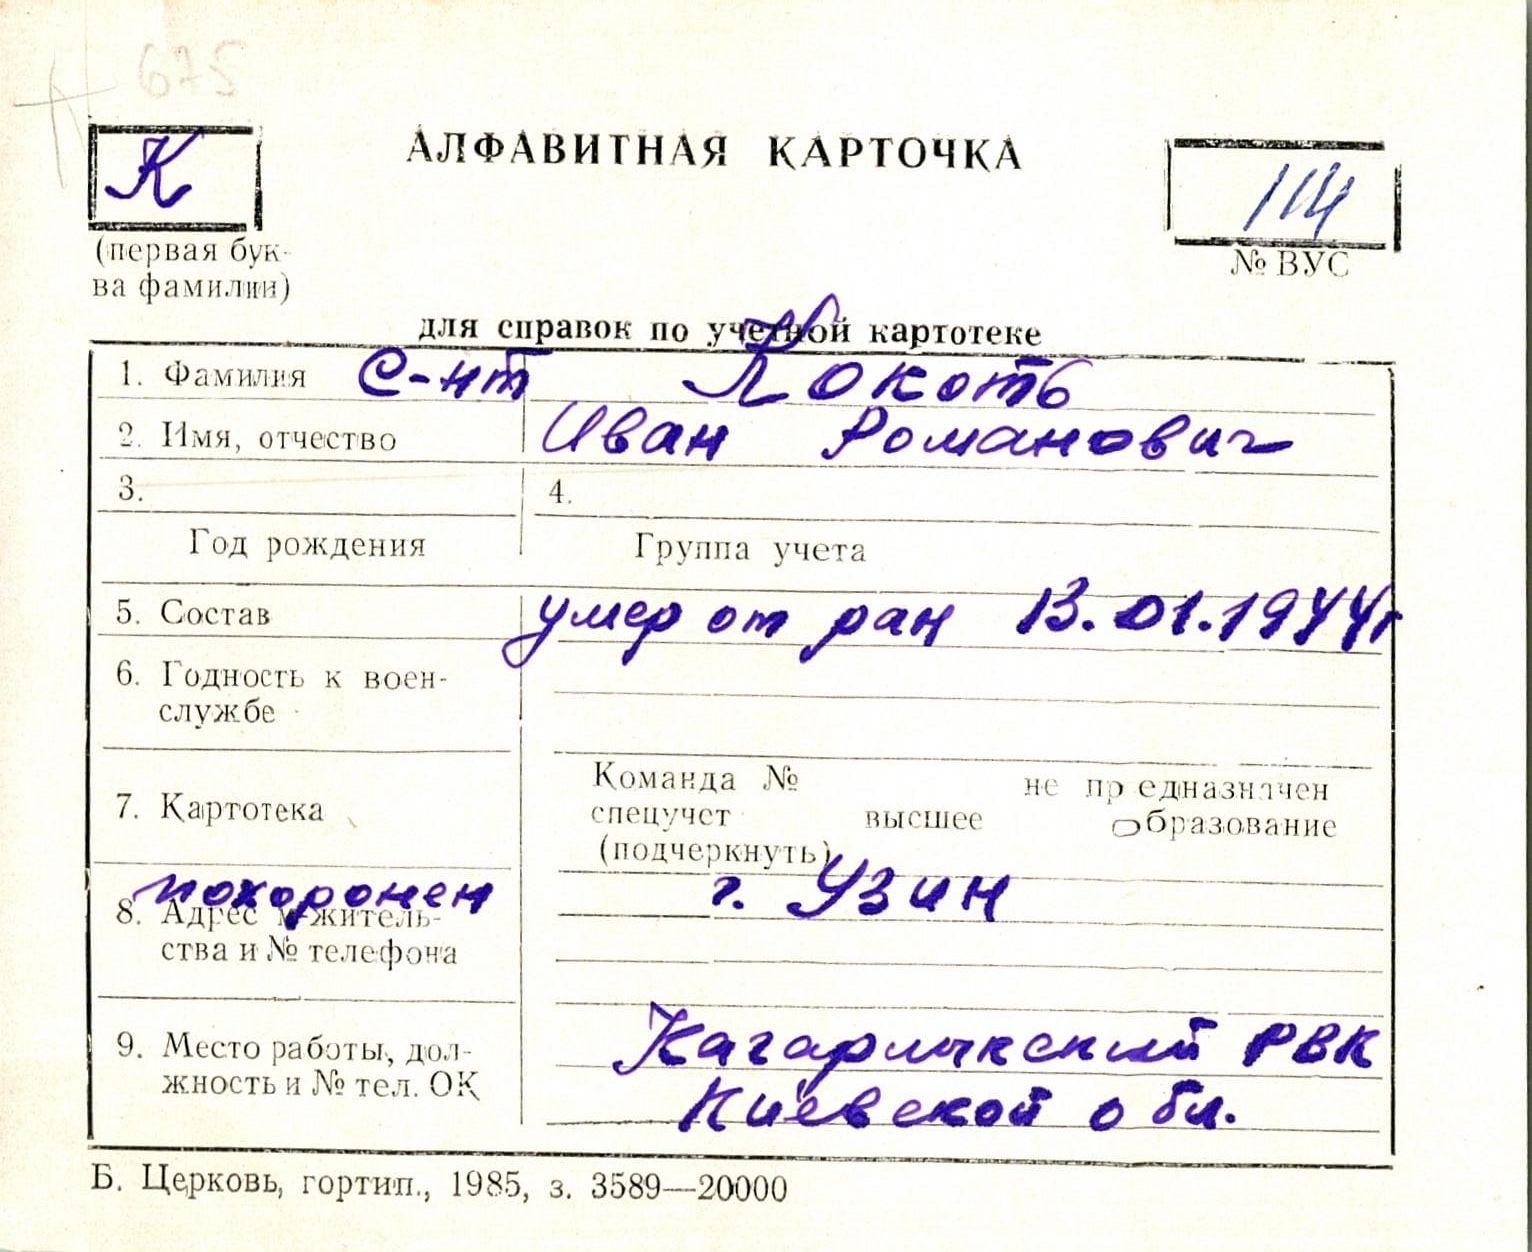 675
К
АЛФАВИТНАЯ КАРТОЧКА
114
(первая бук-
ва фамилии)
№ ВУС
для справок по учетной картотеке
1. Фамилия с-нт Кокоть
2. Имя, отчество Иван Романович
3. 4.
Год рождения Группа учета
5. Состав умер от ран 13.01.1944г
6. Годность к воен-
службе
7. Картотека
Команда № не предназначен
спецучет высшее образование
(подчеркнуть)
похоронен г. Узин
8. Адрес м-житель-
ства и № телефона
9. Место работы, дол-
жность и № тел. ОК
Кагарлыкский РВК
Киевской обл.
Б. Церковь, гортип., 1985, з. 3589—20000